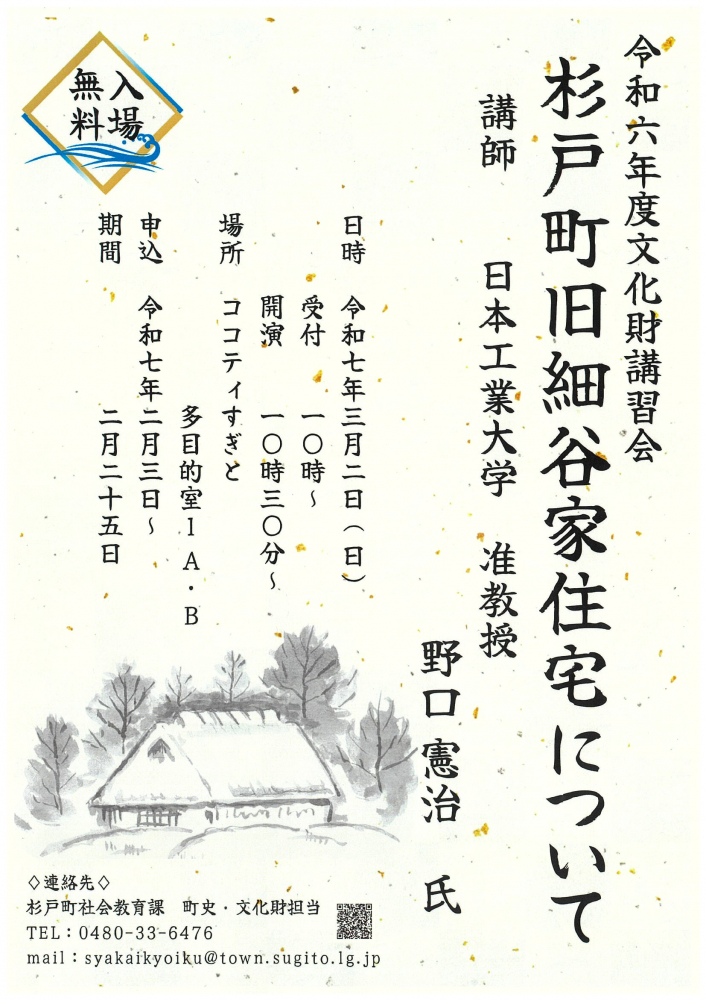 令和六年度文化財講習会
杉戸町旧細谷家住宅について
講師　日本工業大学　准教授
野口憲治　氏
日時　令和七年三月二日（日）
受付　一〇時～
開演　一〇時三〇分～
場所　ココティすぎと
多目的室１Ａ・Ｂ
申込　令和七年二月三日～
期間　二月二十五日
入場
無料
◇連絡先◇
杉戸町社会教育課　町史・文化財担当
TEL：0480-33-6476
mail：syakaikyoiku@town.sugito.lg.jp